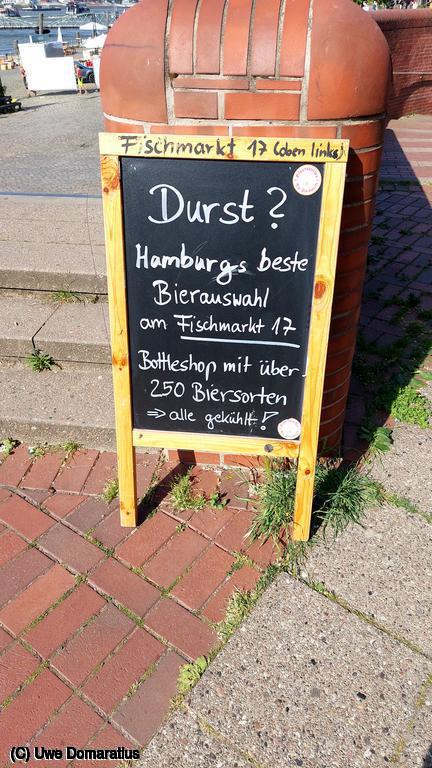 Fischmarkt 17 (oben links)
Durst?
Hamburgs beste
Bierauswahl
am Fischmarkt 17
Bottleshop mit über
250 Biersorten
⇒ alle gekühlt!
(C) Uwe Domaratius